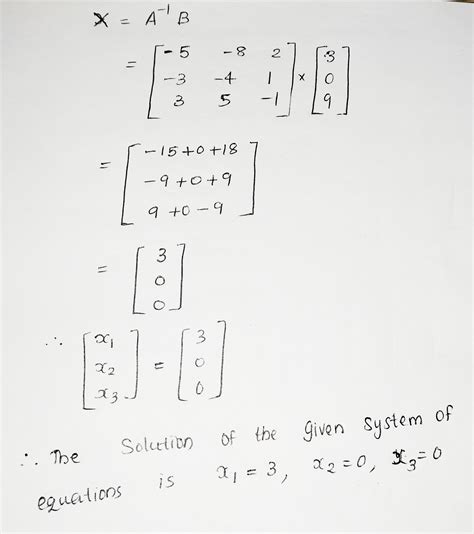 X = A⁻¹ B
= [ -5 -8 2 ; -3 -4 1 ; 3 5 -1 ] × [ 3 ; 0 ; 9 ]
= [ -15+0+18 ; -9+0+9 ; 9+0-9 ]
= [ 3 ; 0 ; 0 ]
∴ [ x₁ ; x₂ ; x₃ ] = [ 3 ; 0 ; 0 ]
∴ The Solution of the given system of
equations is x₁ = 3, x₂ = 0, x₃ = 0